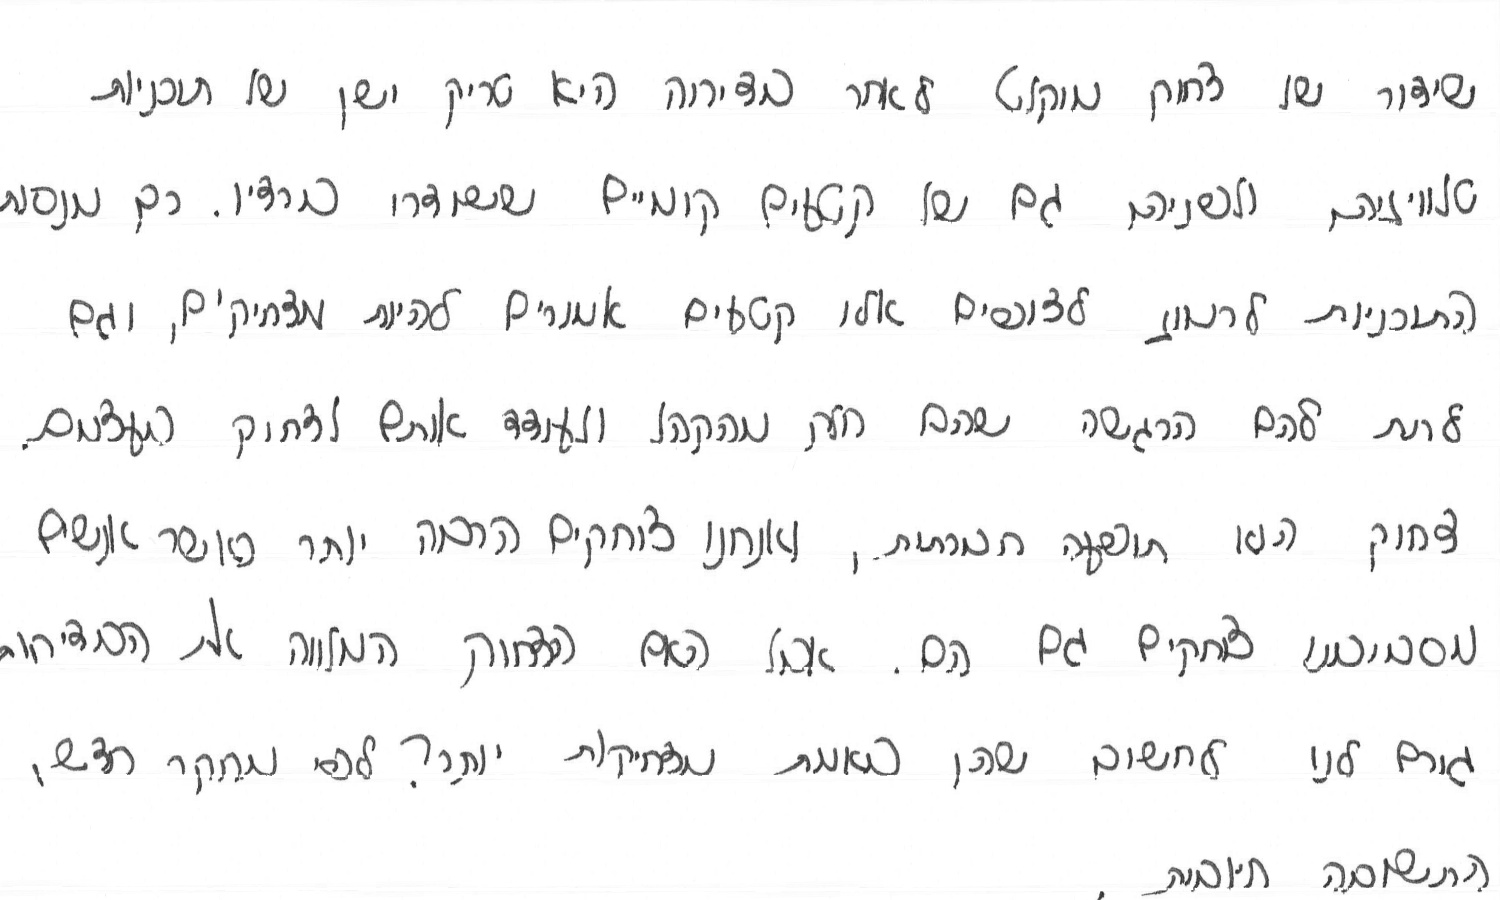 שידור של צחוק מוקלט לאחר בדיחה היא טריק ישן של תוכניות
טלוויזיה ולפניהם גם של קטעים קומיים ששודרו ברדיו. כך מנסות
התוכניות לרמוז לצופים אלו קטעים אמורים להיות מצחיקים, וגם
לתת להם הרגשה שהם חלק מהקהל ולעודד אותם לצחוק בעצמם.
צחוק הוא תופעה חברתית, ואנחנו צוחקים הרבה יותר כאשר אנשים
מסביבנו צוחקים גם הם. אבל האם הצחוק המלווה את הבדיחות
גורם לנו לחשוב שהן באמת מצחיקות יותר? לפי מחקר חדש,
התשובה חיובית.